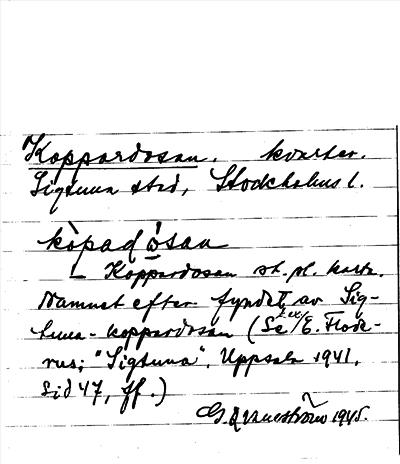 Koppardosan. kvarter.
Sigtuna stad, Stockholms l.
kòpadǫ̀san
Koppardosan st. pl. karta.
Namnet efter fyndet av Sig-
tuna-koppardosan (Se t.ex. E. Flode-
rus; "Sigtuna". Uppsala 1941,
sid 47, ff.)
G. Qvarnström 1945.